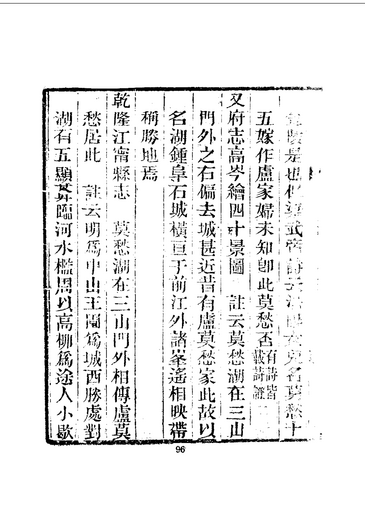 是也
五嫁作盧家婦未知卽此莫愁否有詩皆載詩證
又府志高岑繪四十景圖　註云莫愁湖在三山
門外之右偏去城甚近昔有盧莫愁家此故以
名湖鍾阜石城橫亘于前江外諸峯遙相映帶
稱勝地焉
乾隆江甯縣志　莫愁湖在三山門外相傳盧莫
愁居此　註云明爲中山王園爲城西勝處對
湖有五顯臨河水檻周以高柳爲途人小歇
96